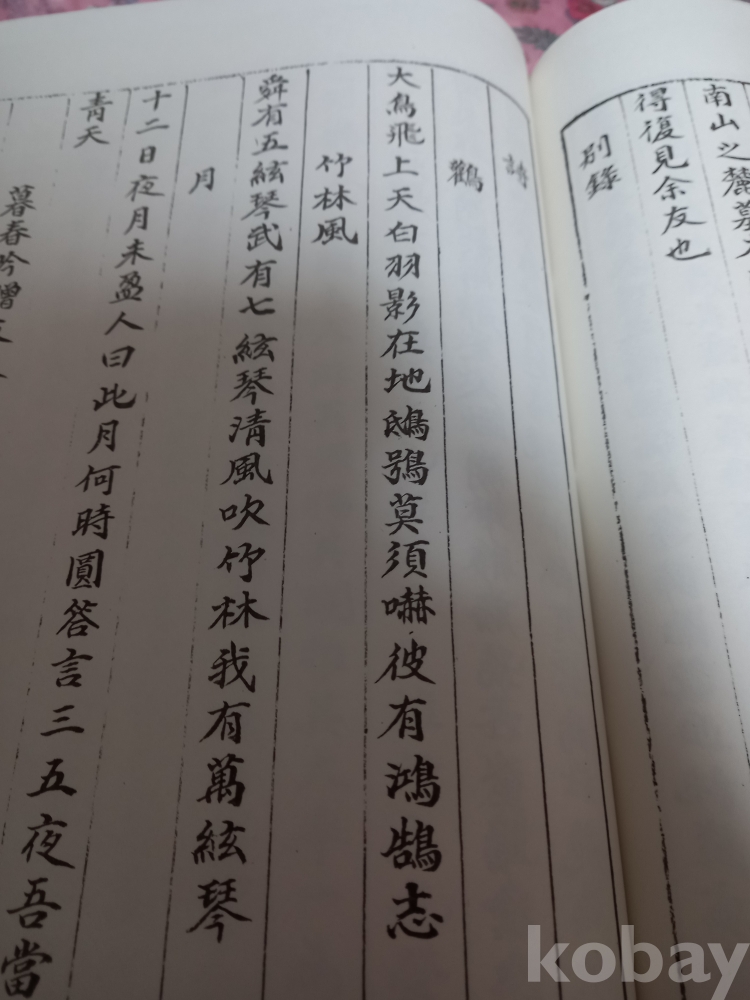 南山之麓墓
得復見余友也
別錄
詩
鸛
大鳥飛上天白羽影在地鴟鴞莫須嚇彼有鴻鵠志
竹林風
舜有五絃琴武有七絃琴清風吹竹林我有萬絃琴
月
十二日夜月未盈人曰此月何時圓答言三五夜吾當
青天
暮春吟贈
kobay